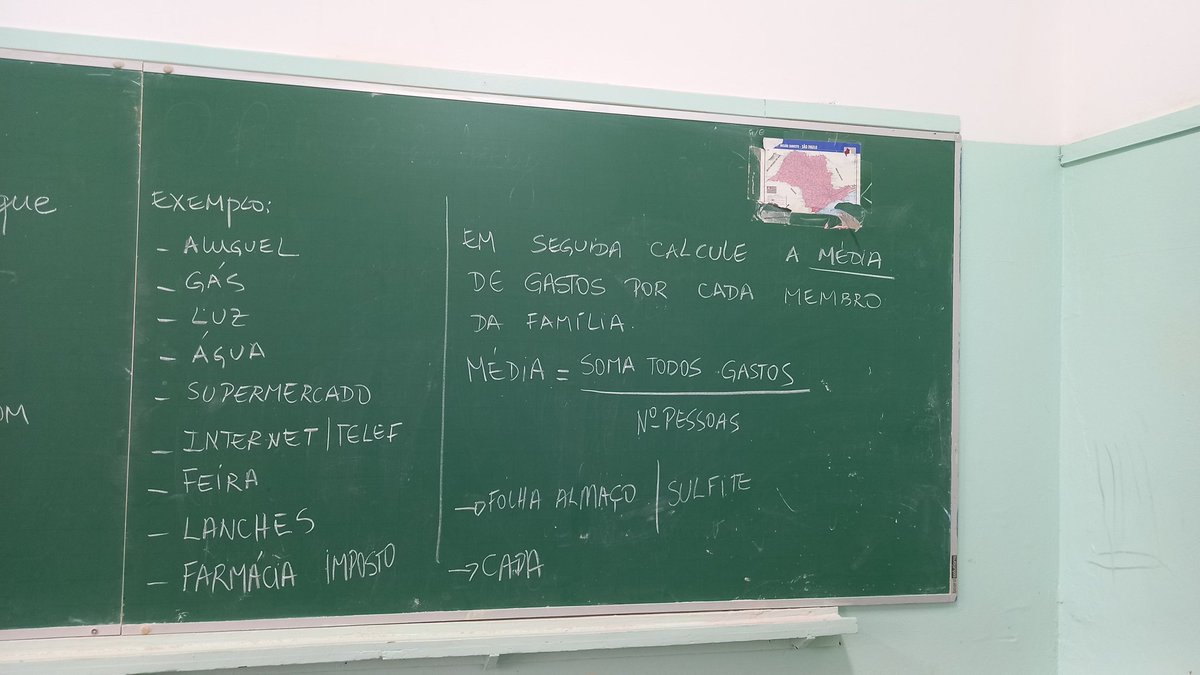 que
OM
EXEMPLO:
- ALUGUEL
- GÁS
- LUZ
- ÁGUA
- SUPERMERCADO
- INTERNET/TELEF
- FEIRA
- LANCHES
- FARMÁCIA IMPOSTO
EM SEGUIDA CALCULE A MÉDIA
DE GASTOS POR CADA MEMBRO
DA FAMÍLIA.
MÉDIA = SOMA TODOS GASTOS
Nº PESSOAS
→ FOLHA ALMAÇO / SULFITE
→ CADA